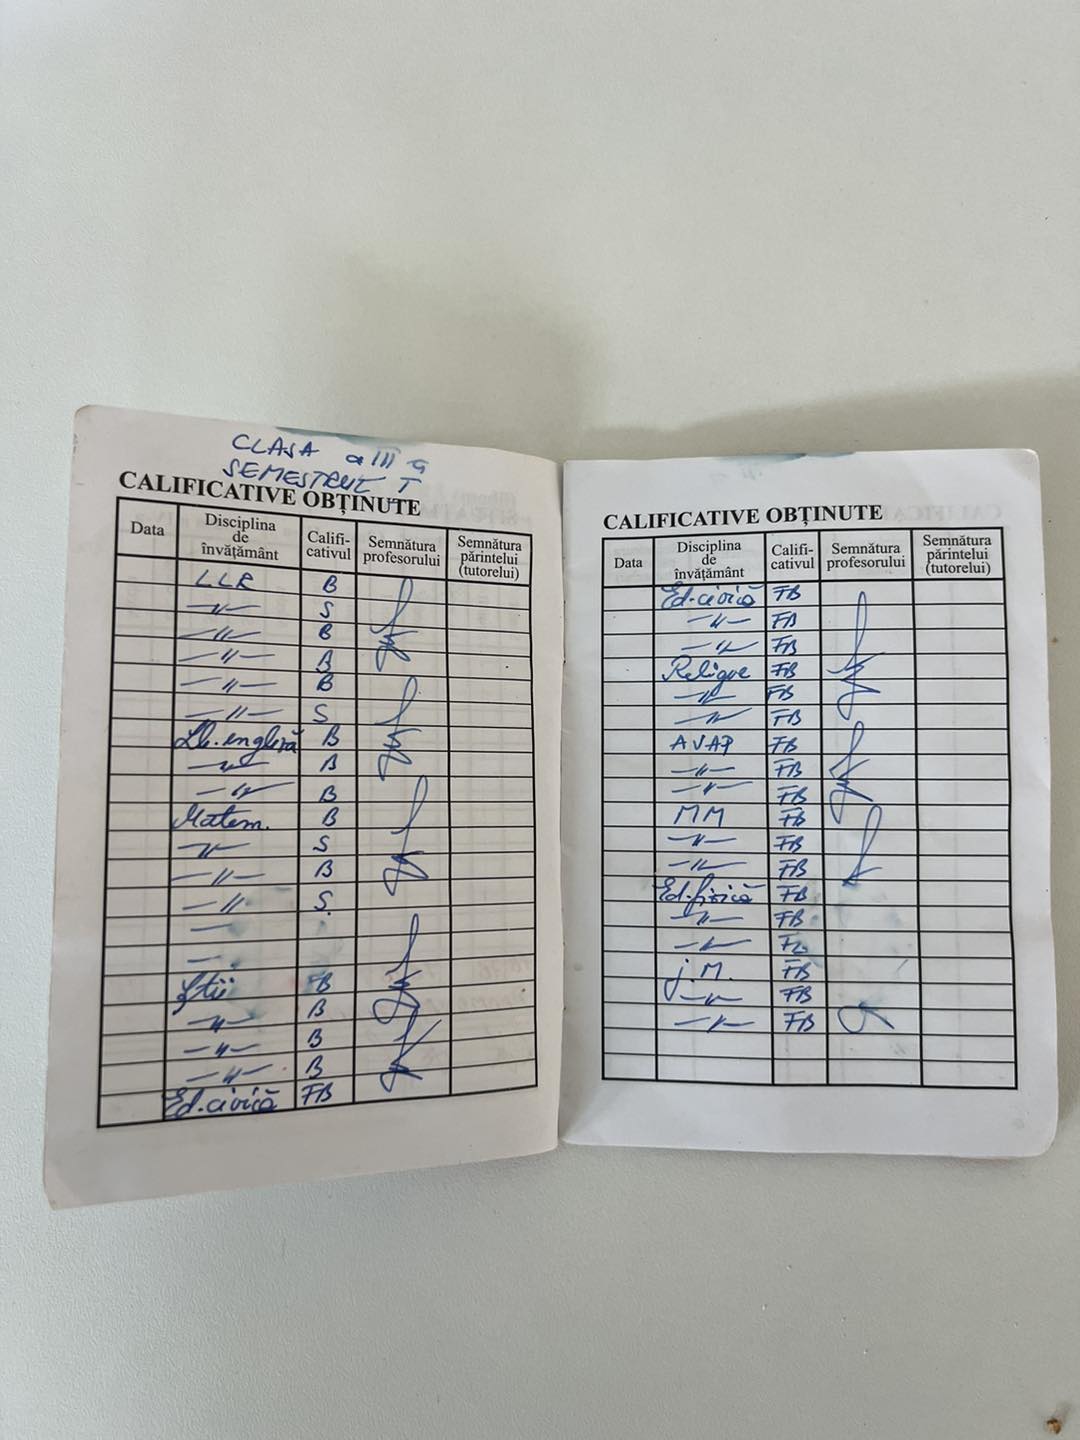 CLASA a III a
SEMESTRUL I
CALIFICATIVE OBȚINUTE
Data Disciplina de învățământ Califi-cativul Semnătura profesorului Semnătura părintelui (tutorelui)
LLR B
—//— S
—//— B
—//— B
—//— B
—//— S
Lb. engleză B
—//— B
—//— B
Matem. B
—//— S
—//— B
—//— S.
—
—
Știi FB
—//— B
—//— B
—//— B
Ed. civică FB
CALIFICATIVE OBȚINUTE
Data Disciplina de învățământ Califi-cativul Semnătura profesorului Semnătura părintelui (tutorelui)
Ed. civică FB
—//— FB
—//— FB
Religie FB
—//— FB
—//— FB
AVAP FB
—//— FB
—//— FB
MM FB
—//— FB
—//— FB
Ed. fizică FB
—//— FB
—//—
J.M. FB
—//— FB
—//— FB